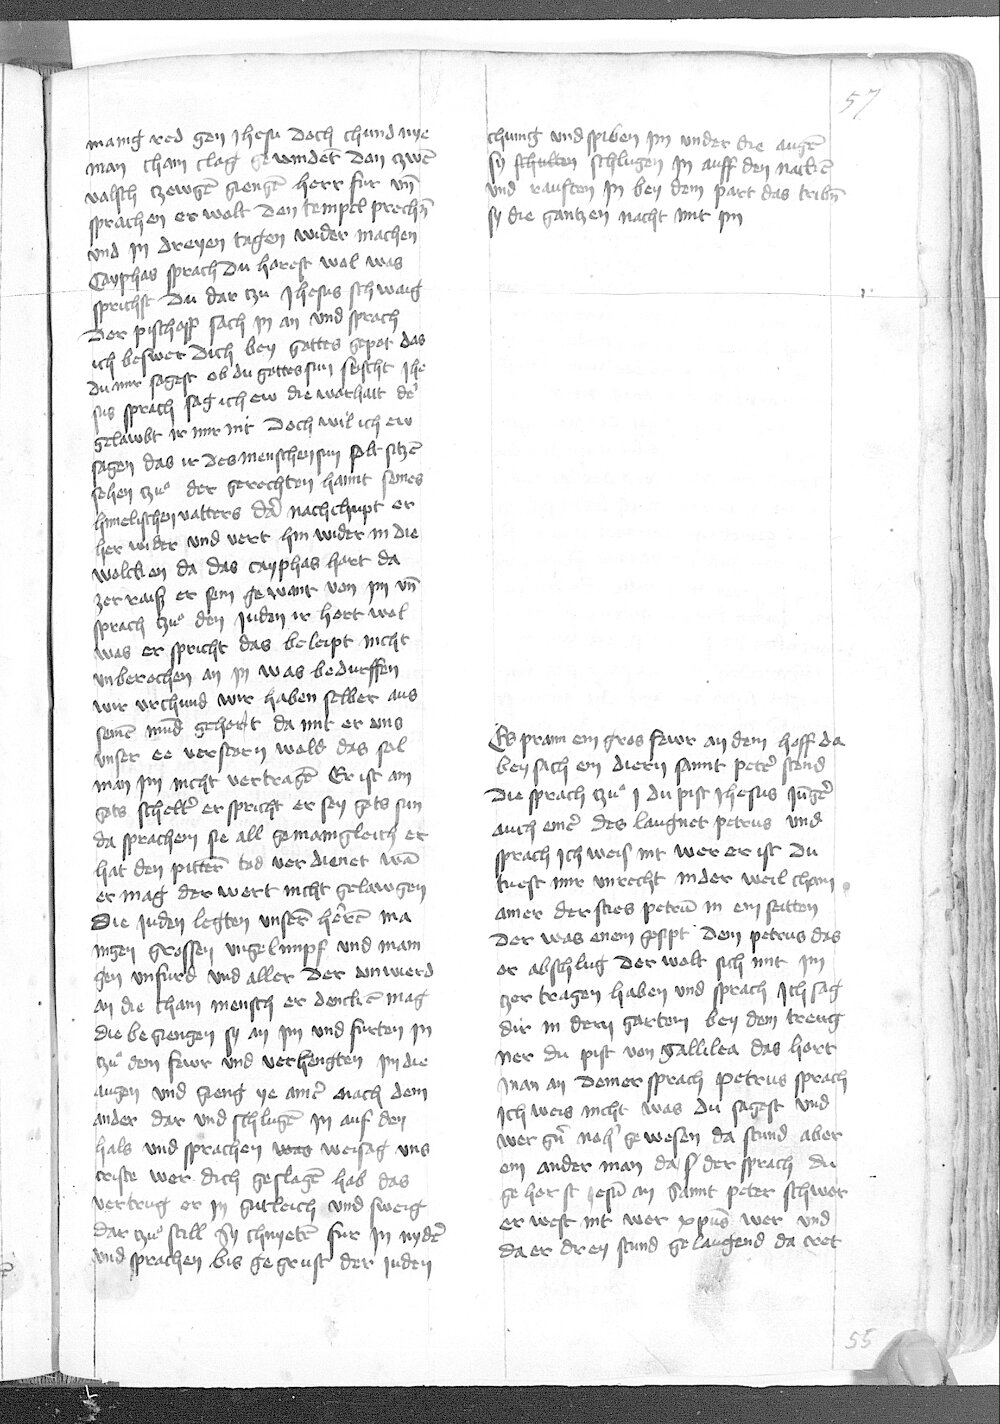 57
manig red gen Jhesu doch chund nye
man cham clag gewindet dan tzwē
valsch tzewgē giengē herr fur vn̄
sprachen er wolt den tempel prechn̄
vnd in dreyen tagen wider machen
Cayphas sprach du horest wol was
sprichst du dar tzu Jhesus schwaig
Der pischoff sach in an vnd sprach
ich beswer dich bey gottes gepot das
du mir sagest ob du gottes sun seist Jhe
sus sprach sag ich ew die warhait der
gelawbt ir mir nit doch wil ich ew
sagen das ir des menschen sun solt sitzē
sehen tzu der gerechten hannt seines
himelischen vatters dar nach chupt er
her wider vnd vert hin wider in die
wolcken da das cayphas hort da
zerraiss er sein gewant von im vn̄
sprach tzu den Juden ir hort wol
was er spricht das beleipt nicht
vnberochen an in was bedurffen
wir vrchund wir haben selber aus
seinē mūd gehort da mit er vns
vnser ee verstorn wold das sol
man im nicht vertragē Er ist ain
gots schelter er spricht er sey gots sun
da sprachen sie all gemaingleich er
hat den pittern tod verdienet wā
er mag der wort nicht gelawgen
Die Juden legten vnserē herrē ma
nigen grossen vngelimpf vnd mani
gen vnfurd vnd aller der vnwierd
an die cham mensch er denckē mag
die begiengen sy an im vnd furten in
tzu dem fewr vnd verhengten im die
augen vnd gieng ye ainer nach dem
ander dar vnd schlugē in auf den
hals vnd sprachen was weisag vns
criste wer dich geslagē hab das
vertrug er in gutleich vnd sweig
dar tzu still Sy chnyetē fur in nyder
vnd sprachen bis gegrust der Juden
chunig vnd spiben im vnder die augē
sy schulten schlugen in auff den nackē
vnd rauften in bey dem part das tribn̄
sy die gantzen nacht mit im
Es prann ein gros fewr an dem hoff da
bey sach ein diern sannt peter stend
Die sprach tzu I du pist Jhesus Jūger
auch einer des laugnet petrus vnd
sprach Ich weis nit wer er ist du
tuest mir vnrecht in der weil cham
ainer der sties petrū in ein seitten
Der was enem gesipt dem petrus das
or abschlug Der wolt sich mit im
tzertragen haben vnd sprach Ich sag
dir in dem garten bey dem treug
ner du pist von Gallilea das hort
man an deiner sprach Petrus sprach
Ich weis nicht was du sagest vnd
wer gn̄ noh gewesen da stund aber
ein ander man da der sprach du
gehorst Jesū an Sannt peter schwor
er west nit wer xpūs wer vnd
da er drey stund gelaugend da cret
55